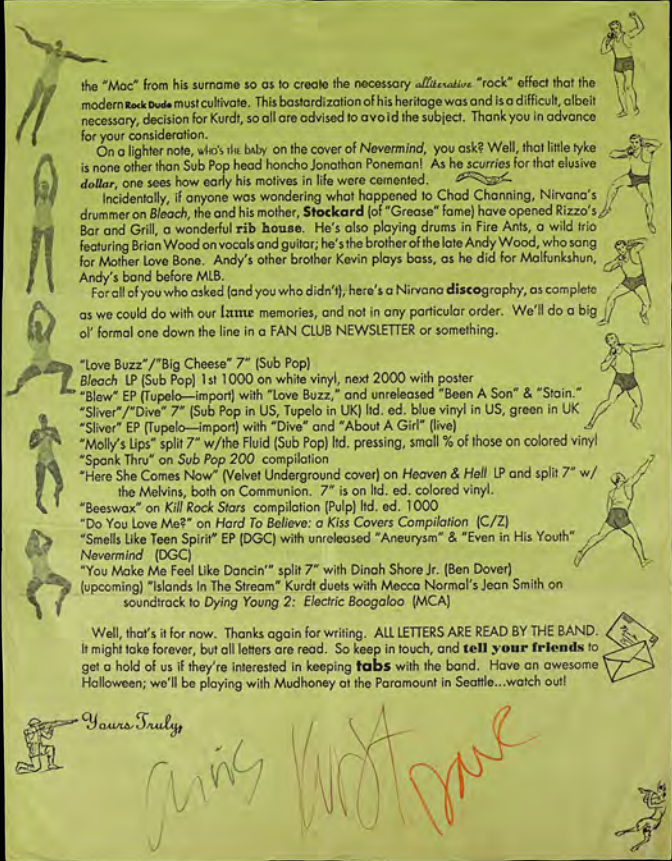 the "Mac" from his surname so as to create the necessary alliterative "rock" effect that the
modern Rock Dude must cultivate. This bastardization of his heritage was and is a difficult, albeit
necessary, decision for Kurdt, so all are advised to avoid the subject. Thank you in advance
for your consideration.
On a lighter note, WHO'S THE BABY on the cover of Nevermind, you ask? Well, that little tyke
is none other than Sub Pop head honcho Jonathan Poneman! As he scurries for that elusive
dollar, one sees how early his motives in life were cemented.
Incidentally, if anyone was wondering what happened to Chad Channing, Nirvana's
drummer on Bleach, the and his mother, Stockard (of "Grease" fame) have opened Rizzo's
Bar and Grill, a wonderful rib house. He's also playing drums in Fire Ants, a wild trio
featuring Brian Wood on vocals and guitar; he's the brother of the late Andy Wood, who sang
for Mother Love Bone. Andy's other brother Kevin plays bass, as he did for Malfunkshun,
Andy's band before MLB.
For all of you who asked (and you who didn't), here's a Nirvana discography, as complete
as we could do with our lame memories, and not in any particular order. We'll do a big
ol' formal one down the line in a FAN CLUB NEWSLETTER or something.
"Love Buzz"/"Big Cheese" 7" (Sub Pop)
Bleach LP (Sub Pop) 1st 1000 on white vinyl, next 2000 with poster
"Blew" EP (Tupelo—import) with "Love Buzz," and unreleased "Been A Son" & "Stain."
"Sliver"/"Dive" 7" (Sub Pop in US, Tupelo in UK) ltd. ed. blue vinyl in US, green in UK
"Sliver" EP (Tupelo—import) with "Dive" and "About A Girl" (live)
"Molly's Lips" split 7" w/the Fluid (Sub Pop) ltd. pressing, small % of those on colored vinyl
"Spank Thru" on Sub Pop 200 compilation
"Here She Comes Now" (Velvet Underground cover) on Heaven & Hell LP and split 7" w/
the Melvins, both on Communion. 7" is on ltd. ed. colored vinyl.
"Beeswax" on Kill Rock Stars compilation (Pulp) ltd. ed. 1000
"Do You Love Me?" on Hard To Believe: a Kiss Covers Compilation (C/Z)
"Smells Like Teen Spirit" EP (DGC) with unreleased "Aneurysm" & "Even in His Youth"
Nevermind (DGC)
"You Make Me Feel Like Dancin'" split 7" with Dinah Shore Jr. (Ben Dover)
(upcoming) "Islands In The Stream" Kurdt duets with Mecca Normal's Jean Smith on
soundtrack to Dying Young 2: Electric Boogaloo (MCA)
Well, that's it for now. Thanks again for writing. ALL LETTERS ARE READ BY THE BAND.
It might take forever, but all letters are read. So keep in touch, and tell your friends to
get a hold of us if they're interested in keeping tabs with the band. Have an awesome
Halloween; we'll be playing with Mudhoney at the Paramount in Seattle...watch out!
Yours Truly,
Chris Kurdt Dave